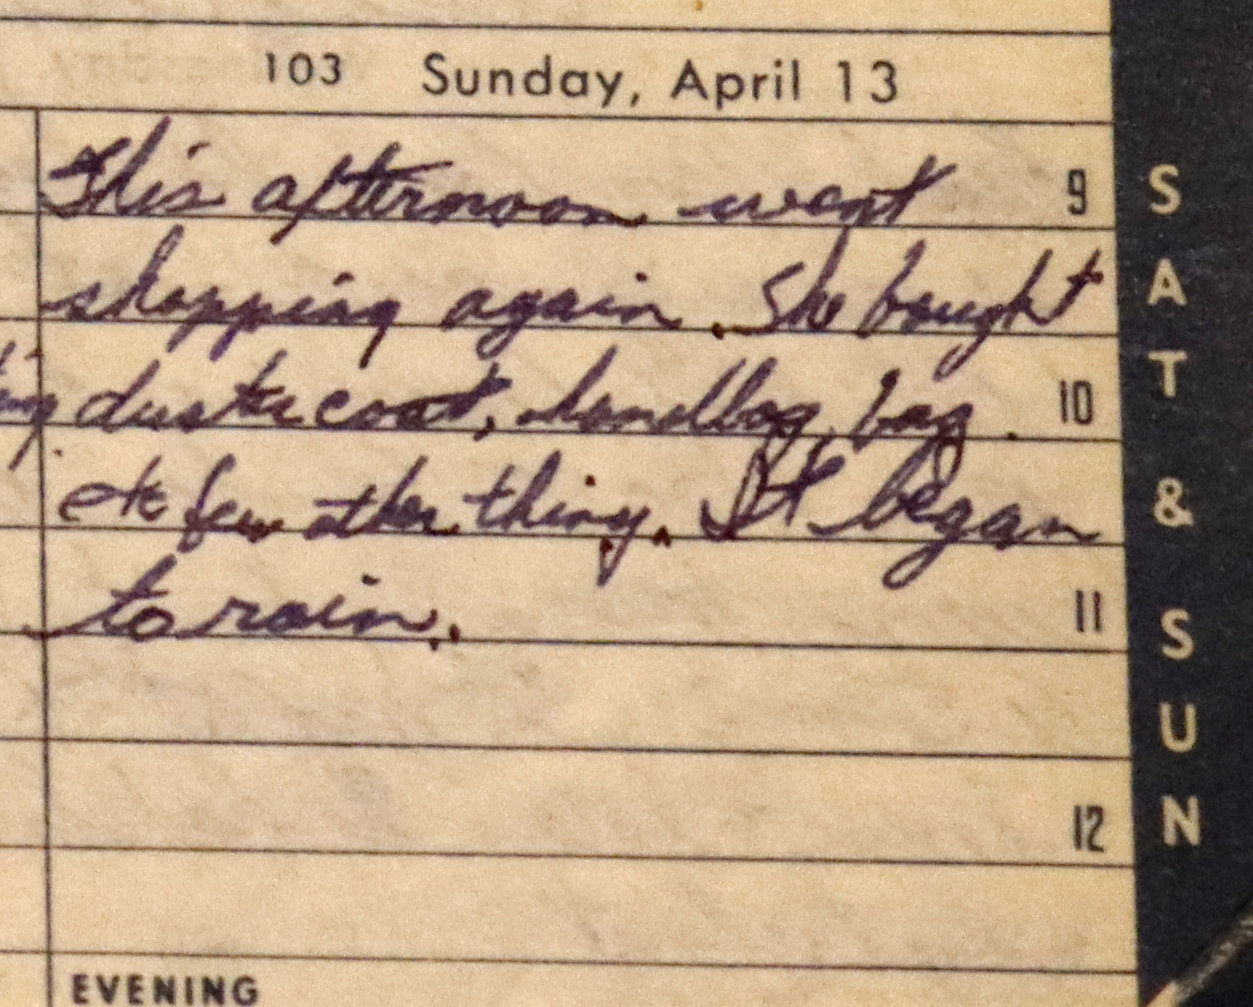 103 Sunday, April 13
This afternoon went 9
shopping again. She bought
duster coat, handbag, bag. 10
etc few other thing. It began
to rain. 11
12
EVENING
SAT & SUN